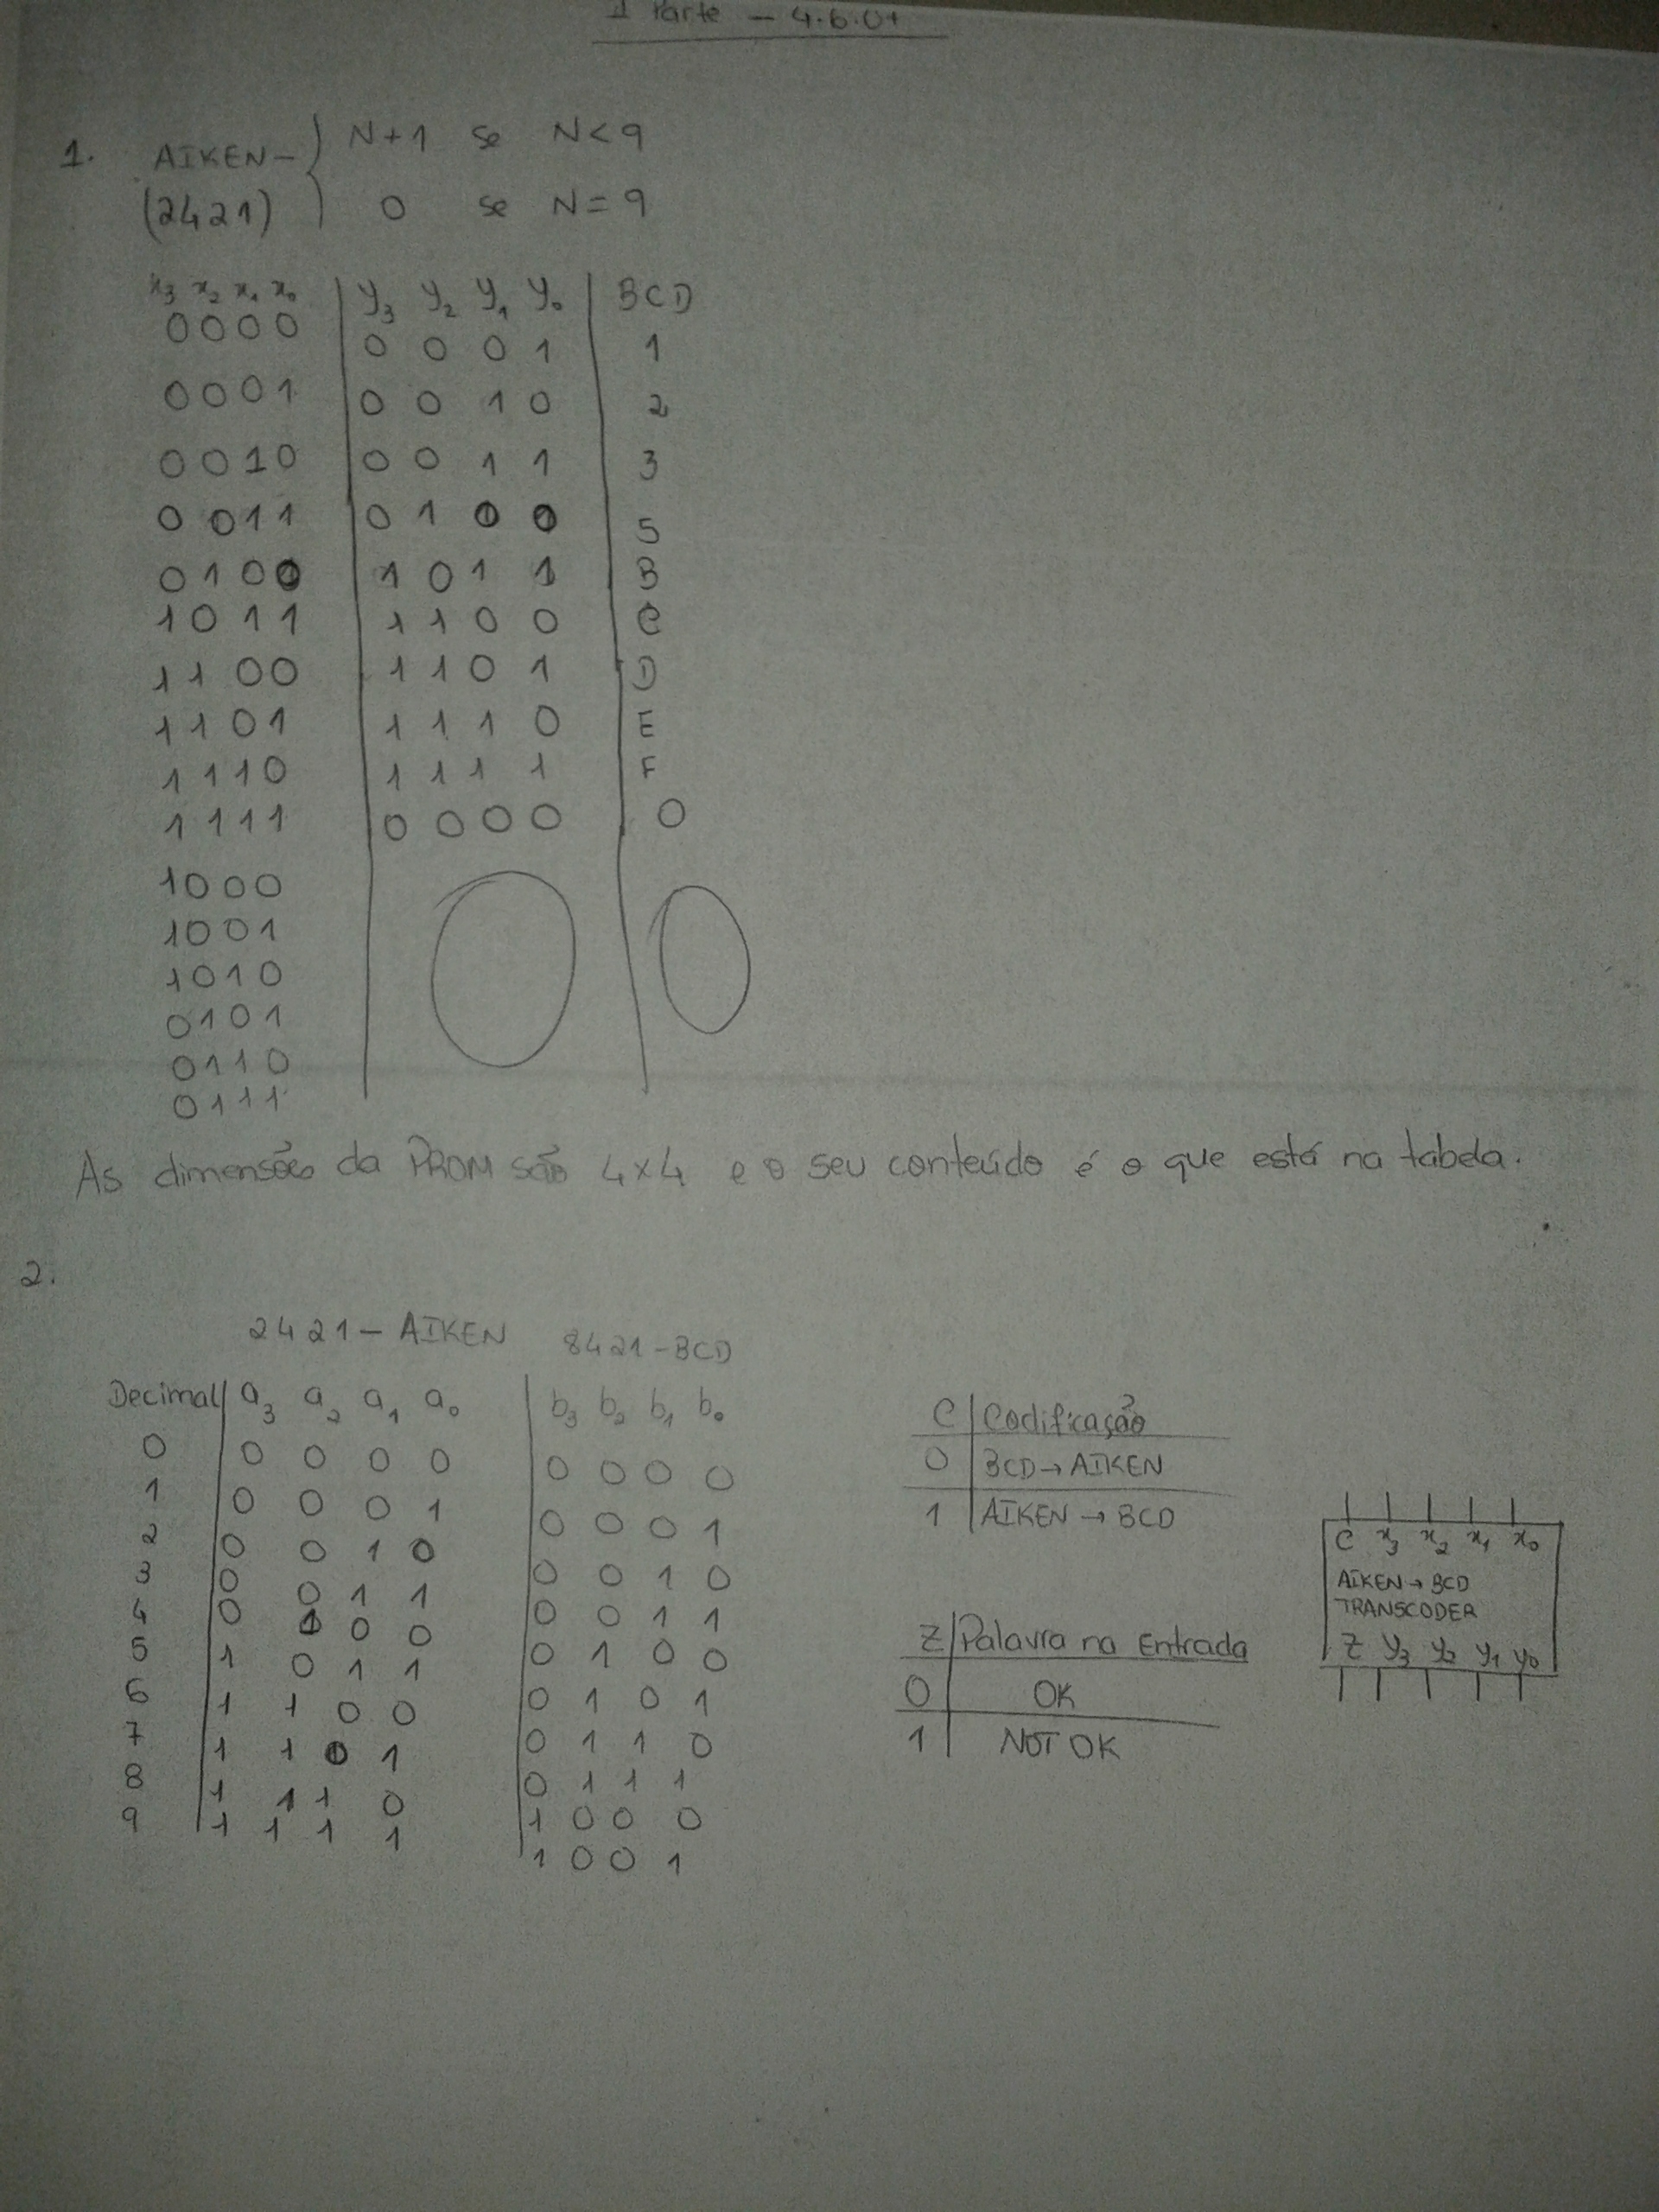 Parte - 4.6.07
1. AIKEN - { N+1 se N<9
(2421) 0 se N=9
x3 x2 x1 x0 | y3 y2 y1 y0 | BCD
0000 | 0 0 0 1 | 1
0001 | 0 0 1 0 | 2
0010 | 0 0 1 1 | 3
0011 | 0 1 0 0 | 5
0100 | 1 0 1 1 | B
1011 | 1 1 0 0 | C
1100 | 1 1 0 1 | D
1101 | 1 1 1 0 | E
1110 | 1 1 1 1 | F
1111 | 0 0 0 0 | 0
1000
1001
1010
0101
0110
0111
As dimensões da PROM são 4x4 e o seu conteúdo é o que está na tabela.
2.
2421 - AIKEN 8421 - BCD
Decimal | a3 a2 a1 a0 | b3 b2 b1 b0
0 | 0 0 0 0 | 0 0 0 0
1 | 0 0 0 1 | 0 0 0 1
2 | 0 0 1 0 | 0 0 1 0
3 | 0 0 1 1 | 0 0 1 1
4 | 0 1 0 0 | 0 1 0 0
5 | 1 0 1 1 | 0 1 0 1
6 | 1 1 0 0 | 0 1 1 0
7 | 1 1 0 1 | 0 1 1 1
8 | 1 1 1 0 | 1 0 0 0
9 | 1 1 1 1 | 1 0 0 1
C | Codificação
0 | BCD → AIKEN
1 | AIKEN → BCD
Z | Palavra na Entrada
0 | OK
1 | NOT OK
C x3 x2 x1 x0
AIKEN → BCD
TRANSCODER
Z y3 y2 y1 y0